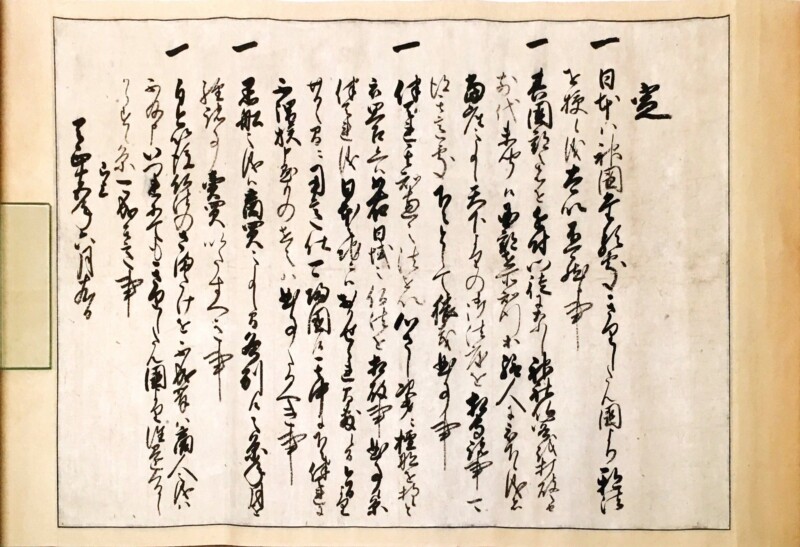 覚
一 日本ハ神国たる処きりしたん国より邪法
を授候儀太以不可然候事
一 其国郡之者を近付門徒になし神社仏閣を打破
前代未聞候国郡在所知行等給人に被下候儀者
当座之事候天下よりの御法度を相守諸事可
得其意処下々として猥義曲事事
一 伴天連其知恵之法を以心さし次第ニ檀那を持候と
被思召候へハ如右日域之仏法を相破事曲事候条
伴天連儀日本之地ニハおかせられ間敷候間今日より
廿日之間ニ用意仕可帰国候其中に下々伴天連に
不謂族申懸もの在之ハ曲事たるへき事
一 黒船之儀ハ商買之事候間各別に候之条年月を
経諸事売買いたすへき事
一 自今以後仏法のさまたけを不成輩ハ商人之儀ハ
不及申いつれにてもきりしたん国より往還くるし
からす候条可成其意事
已上
天正十五年六月十九日